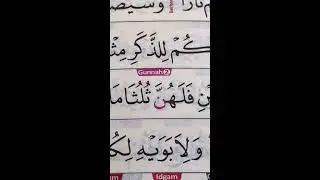 كُمْ لِلذَّكَرِ مِثْ
Gunnah 2
نِ فَلَهُنَّ ثُلُثَا مَا
وَلِأَبَوَيْهِ لِكُ
Idgam